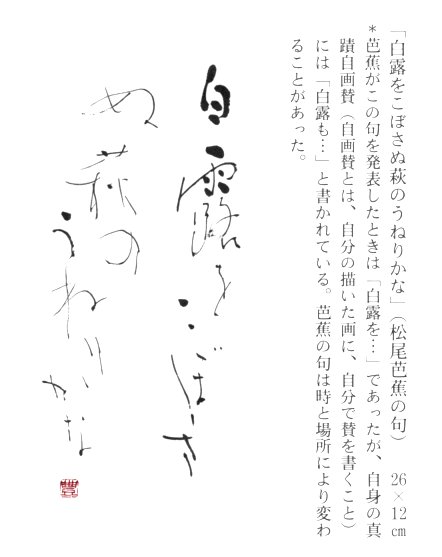 「白露をこぼさぬ萩のうねりかな」（松尾芭蕉の句）　26×12㎝
＊芭蕉がこの句を発表したときは「白露を…」であったが、自身の真
蹟自画賛（自画賛とは、自分の描いた画に、自分で賛を書くこと）
には「白露も…」と書かれている。芭蕉の句は時と場所により変わ
ることがあった。
白露をこぼさ
ぬ萩の
うねりかな